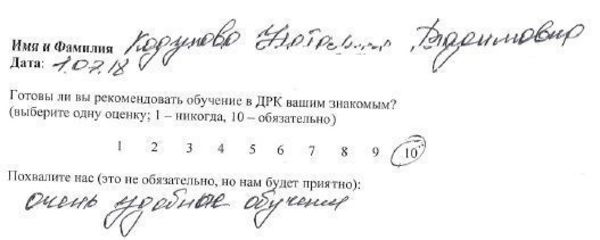 Имя и Фамилия Кадунова Наталья Вадимовна
Дата: 1.07.18
Готовы ли вы рекомендовать обучение в ДРК вашим знакомым?
(выберите одну оценку; 1 – никогда, 10 – обязательно)
1 2 3 4 5 6 7 8 9 10
Похвалите нас (это не обязательно, но нам будет приятно):
очень удобное обучение